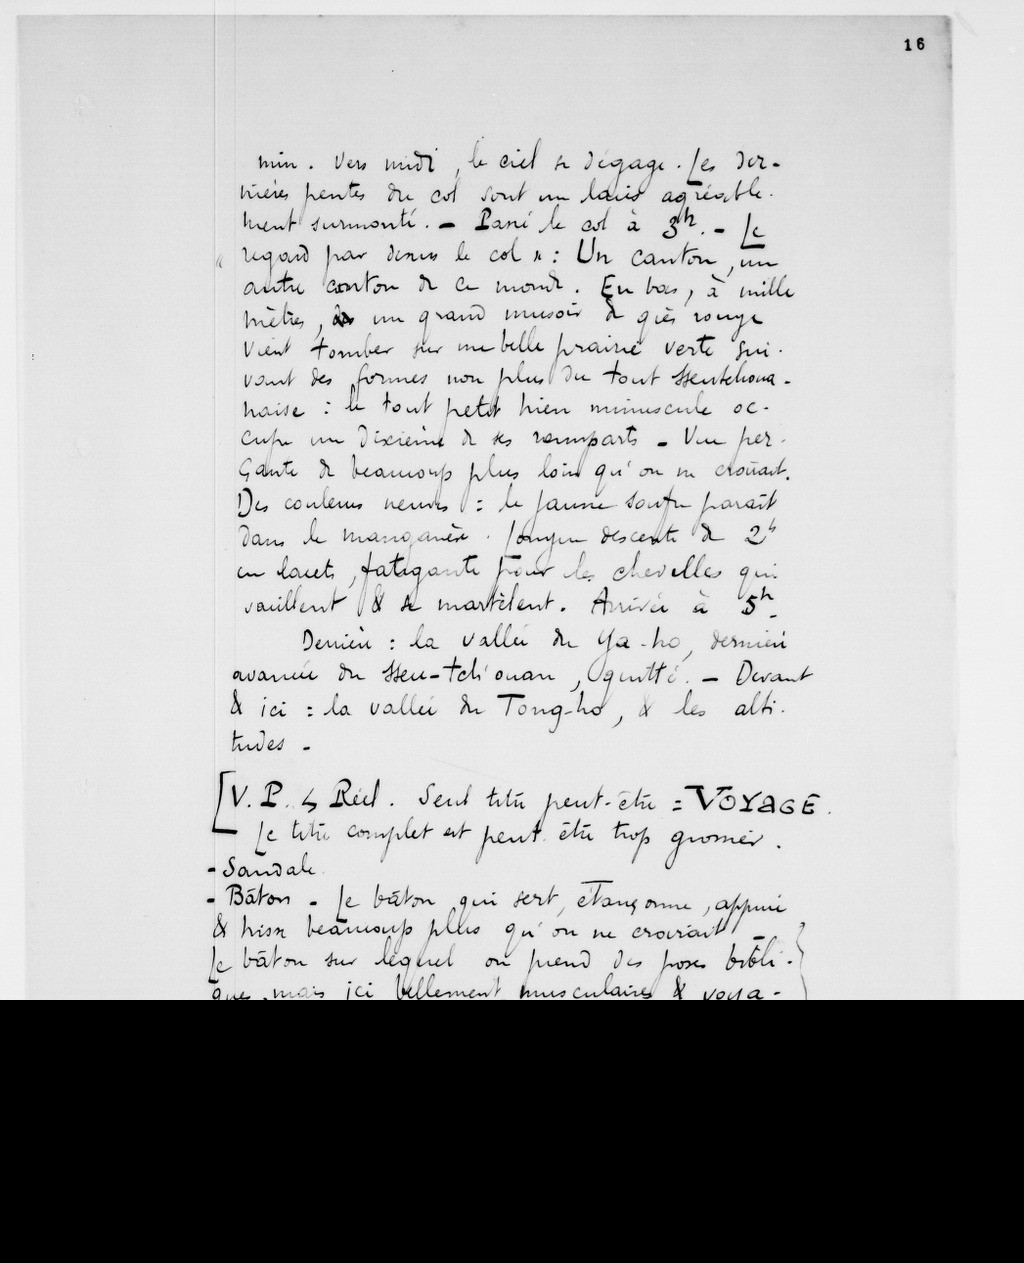 16
min. Vers midi, le ciel se dégage. Les der-
nières pentes du col sont un lacis agréable-
ment surmonté. – Passé le col à 3h. – Le
« regard par dessus le col » : Un canton, un
autre canton de ce monde. En bas, à mille
mètres, un grand musoir de grès rouge
vient tomber sur une belle prairie verte sui-
vant des formes non plus du tout sseutchoua-
naise : le tout petit hien minuscule oc-
cupe un dixième de ses remparts – Vue per-
çante de beaucoup plus loin qu'on ne croirait.
Des couleurs neuves : le jaune soufre paraît
dans le manganèse. Longue descente de 2h
en lacets, fatigante pour les chevilles qui
vaillent & se martèlent. Arrivée à 5h.
Derrière : la vallée du Ya-ho, dernière
avancée du Sseu-tch'ouan, quittée. – Devant
& ici : la vallée du Tong-ho, & les alti-
tudes –
[V. P. Réel. Seul titre peut-être = VOYAGE.
Le titre complet est peut être trop grossier.
- Sandale.
- Bâton – Le bâton qui sert, étançonne, appuie
& hisse beaucoup plus qu'on ne croirait
Le bâton sur lequel on prend des poses bibli-
ques, mais ici bellement musculaires & voya-